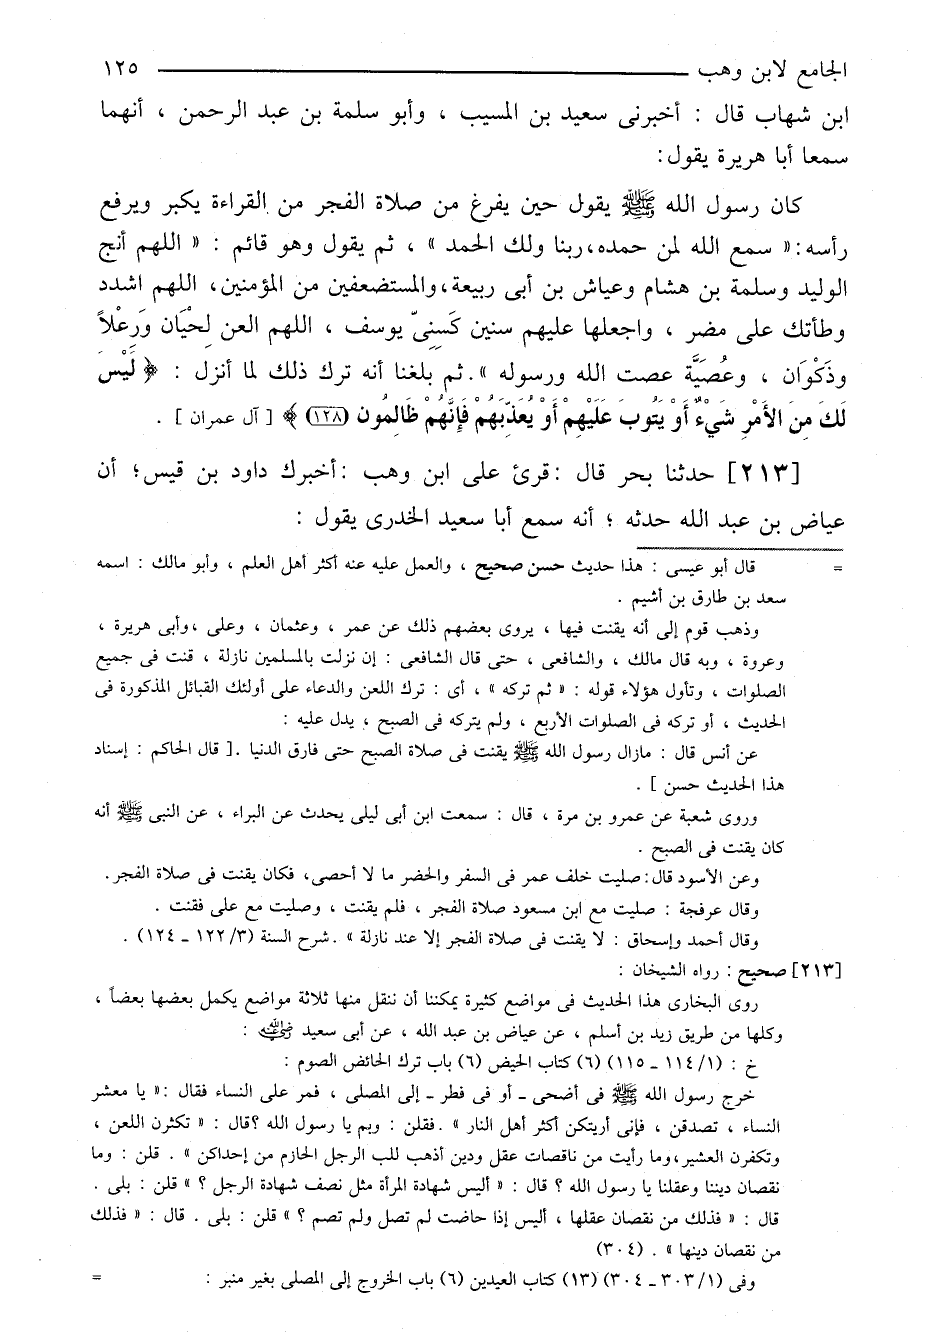 الجامع لابن وهب ١٢٥
ابن شهاب قال : أخبرنى سعيد بن المسيب ، وأبو سلمة بن عبد الرحمن ، أنهما
سمعا أبا هريرة يقول:
كان رسول الله ﷺ يقول حين يفرغ من صلاة الفجر من القراءة يكبر ويرفع
رأسه:« سمع الله لمن حمده،ربنا ولك الحمد » ، ثم يقول وهو قائم : « اللهم أنج
الوليد وسلمة بن هشام وعياش بن أبى ربيعة،والمستضعفين من المؤمنين، اللهم اشدد
وطأتك على مضر ، واجعلها عليهم سنين كَسِنِىِّ يوسف ، اللهم العن لِحْيَان وَرِعْلاً
وذَكْوَان ، وعُصَيَّة عصت الله ورسوله ».ثم بلغنا أنه ترك ذلك لما أنزل : ﴿ لَيْسَ
لَكَ مِنَ الأَمْرِ شَيْءٌ أَوْ يَتُوبَ عَلَيْهِمْ أَوْ يُعَذِّبَهُمْ فَإِنَّهُمْ ظَالِمُونَ (١٢٨) ﴾ [ آل عمران ] .
[٢١٣] حدثنا بحر قال :قرئ على ابن وهب :أخبرك داود بن قيس؛ أن
عياض بن عبد الله حدثه ؛ أنه سمع أبا سعيد الخدرى يقول :
= قال أبو عيسى : هذا حديث حسن صحيح ، والعمل عليه عنه أكثر أهل العلم ، وأبو مالك : اسمه
سعد بن طارق بن أشيم .
وذهب قوم إلى أنه يقنت فيها ، يروى بعضهم ذلك عن عمر ، وعثمان ، وعلى ،وأبى هريرة ،
وعروة ، وبه قال مالك ، والشافعى ، حتى قال الشافعى : إن نزلت بالمسلمين نازلة ، قنت فى جميع
الصلوات ، وتأول هؤلاء قوله : « ثم تركه » ، أى : ترك اللعن والدعاء على أولئك القبائل المذكورة فى
الحديث ، أو تركه فى الصلوات الأربع ، ولم يتركه فى الصبح ، يدل عليه :
عن أنس قال : مازال رسول الله ﷺ يقنت فى صلاة الصبح حتى فارق الدنيا .[ قال الحاكم : إسناد
هذا الحديث حسن ] .
وروى شعبة عن عمرو بن مرة ، قال : سمعت ابن أبى ليلى يحدث عن البراء ، عن النبى ﷺ أنه
كان يقنت فى الصبح .
وعن الأسود قال:صليت خلف عمر فى السفر والحضر ما لا أحصى، فكان يقنت فى صلاة الفجر.
وقال عرفجة : صليت مع ابن مسعود صلاة الفجر ، فلم يقنت ، وصليت مع على فقنت .
وقال أحمد وإسحاق : لا يقنت فى صلاة الفجر إلا عند نازلة » .شرح السنة (٣/ ١٢٢ ـ ١٢٤) .
[٢١٣] صحيح : رواه الشيخان :
روى البخارى هذا الحديث فى مواضع كثيرة يمكننا أن ننقل منها ثلاثة مواضع يكمل بعضها بعضاً ،
وكلها من طريق زيد بن أسلم ، عن عياض بن عبد الله ، عن أبى سعيد رضي الله عنه :
خ : (١/ ١١٤ ـ ١١٥) (٦) كتاب الحيض (٦) باب ترك الحائض الصوم :
خرج رسول الله ﷺ فى أضحى ـ أو فى فطر ـ إلى المصلى ، فمر على النساء فقال :« يا معشر
النساء ، تصدقن ، فإنى أريتكن أكثر أهل النار » .فقلن : وبم يا رسول الله ؟قال : « تكثرن اللعن ،
وتكفرن العشير،وما رأيت من ناقصات عقل ودين أذهب للب الرجل الحازم من إحداكن » . قلن : وما
نقصان ديننا وعقلنا يا رسول الله ؟ قال : « أليس شهادة المرأة مثل نصف شهادة الرجل ؟ » قلن : بلى .
قال : « فذلك من نقصان عقلها ، أليس إذا حاضت لم تصل ولم تصم ؟ » قلن : بلى . قال : « فذلك
من نقصان دينها » . (٣٠٤)
وفى (١/ ٣٠٣ ـ ٣٠٤) (١٣) كتاب العيدين (٦) باب الخروج إلى المصلى بغير منبر : =